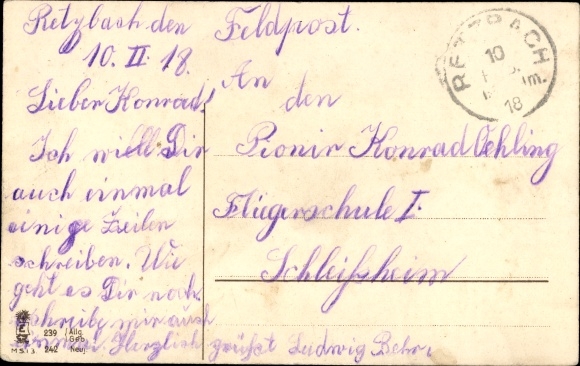 Retzbach den
10. II. 18.
Lieber Konrad!
Ich will Dir
auch einmal
einige Zeilen
schreiben. Wie
geht es Dir noch
schreibe mir auch
einmal Herzlich grüßt Ludwig Behr.
Feldpost.
An
den
Pionir Konrad Oehling
Fliegerschule I.
Schleißheim
RETZBACH
10
18
239
242
M S i 3